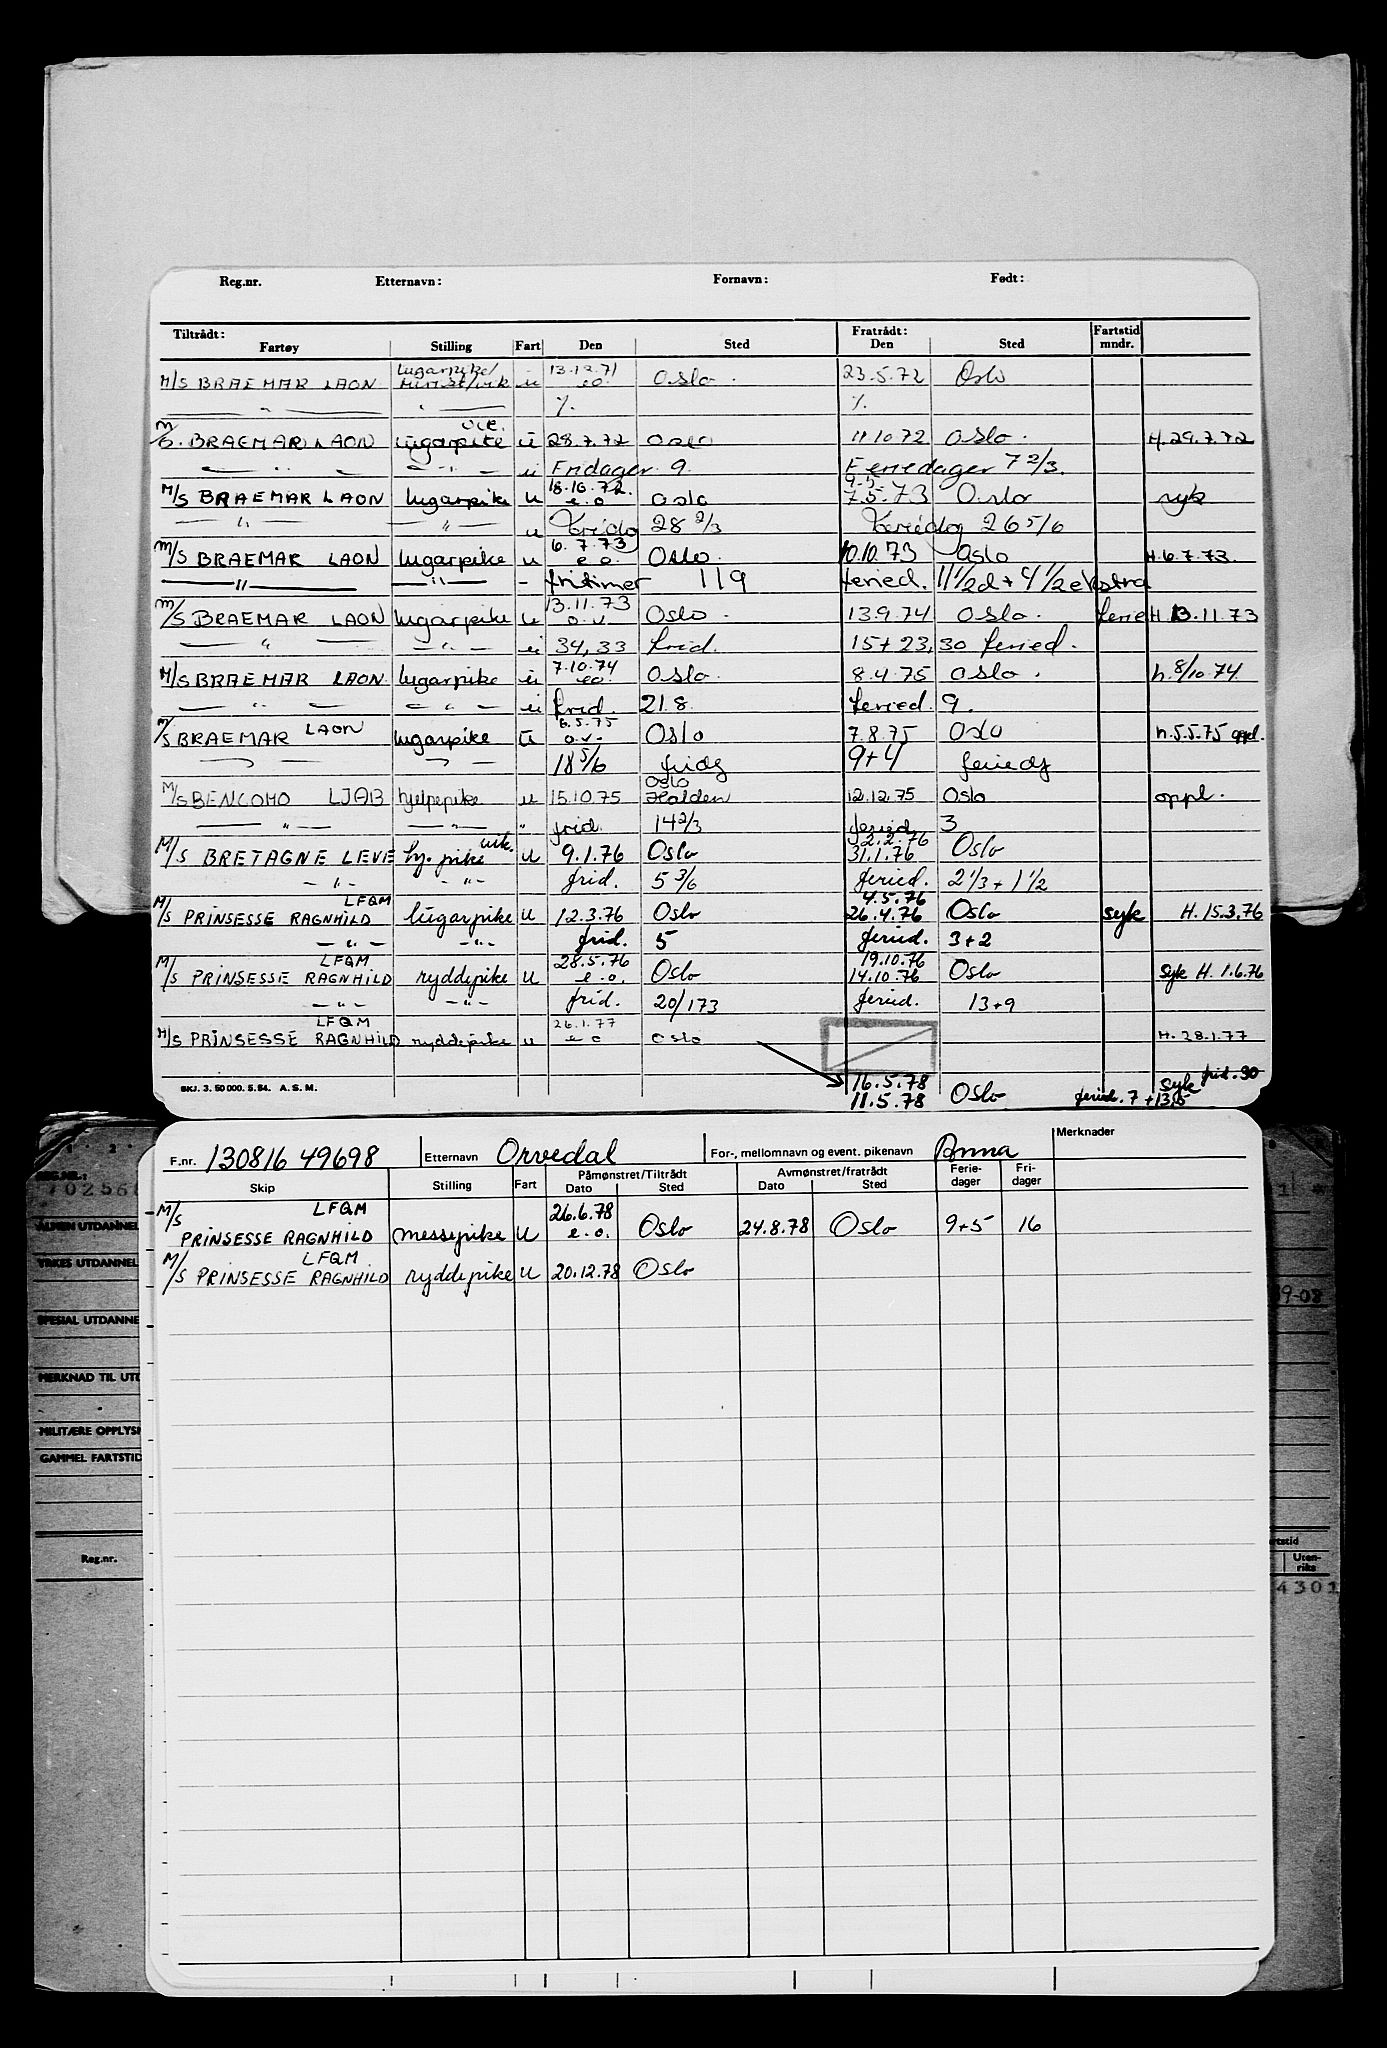 Reg.nr. Etternavn: Fornavn: Født:
Tiltrådt: Fratrådt: Fartstid
Fartøy Stilling Fart Den Sted Den Sted mndr.
M/S BRAEMAR LAON lugarpike/ u 13.12.71 e.o. Oslo. 23.5.72 Oslo
— " — " — % %
M/S. BRAEMAR LAON lugarpike u 28.7.72 Oslo 11.10.72 Oslo. H.29.7.72
— " — — " — u Fridager 9. Feriedager 7 2/3.
M/S BRAEMAR LAON lugarpike u 18.10.72. e.o Oslo 9.5. 7.5.73 Oslo syk
— " — — " — u Fridag 28 2/3 Feriedag 26 5/6
M/S BRAEMAR LAON lugarpike u 6.7.73 e.o. Oslo. 10.10.73 Oslo H.6.7.73.
— " — — " — - fritimer 119 feried. 11 1/2 d + 4 1/2 ekstra
M/S BRAEMAR LAON lugarpike u 13.11.73 o.v. Oslo. 13.9.74 Oslo. ferie H 13.11.73
— " — — " — u 34,33 frid. 15+23,30 feried.
M/S BRAEMAR LAON. lugarpike u 7.10.74 e.o Oslo. 8.4.75 Oslo. h.8/10.74
— " — — " — u frid. 21.8 feried. 9.
M/S BRAEMAR LAON lugarpike u 6.5.75 o.v. Oslo 7.8.75 Oslo h.5.5.75 oppl.
— " — — " — 18 5/6 fridg 9+4 feriedg
M/S BENCOMO LJAB hjelpepike u 15.10.75 Oslo Halden 12.12.75 Oslo oppl.
— " — — " — " frid. 14 2/3 feried. 3
M/S BRETAGNE LEVE hj. pike vik. u 9.1.76 Oslo 2.2.76 31.1.76 Oslo
— " — - " - frid. 5 3/6 feried. 2 1/3 + 1 1/2
M/S PRINSESSE RAGNHILD LFQM lugarpike u 12.3.76 Oslo 4.5.76 26.4.76 Oslo syk H. 15.3.76
— " — - " - frid. 5 feried. 3+2
M/S PRINSESSE RAGNHILD LFQM ryddepike u 28.5.76 e.o. Oslo 19.10.76 14.10.76 Oslo syk H. 1.6.76
— " — - " - frid. 20/173 feried. 13+9
M/S PRINSESSE RAGNHILD LFQM ryddepike u 26.1.77 e o Oslo H. 28.1.77
BKJ. 3. 50 000. 5. 64. A. S. M. 16.5.78 11.5.78 Oslo feried. 7 +13,5 syk frid. 30
F.nr. 130816 49698 Etternavn Orvedal For-, mellomnavn og event. pikenavn Anna Merknader
Skip Stilling Fart Påmønstret/Tiltrådt Dato Sted Avmønstret/fratrådt Dato Sted Ferie-dager Fri-dager
M/S PRINSESSE RAGNHILD LFQM messepike u 26.6.78 e.o. Oslo 24.8.78 Oslo 9+5 16
M/S PRINSESSE RAGNHILD LFQM ryddepike u 20.12.78 Oslo
ALMEN UTDANNEL
YRKES UTDANNEL
SPESIAL UTDANNE
MERKNAD TIL UTD
MILITÆRE OPPLYSN
GAMMEL FARTSTID
Reg.nr.
rtstid
Uten-riks
4301